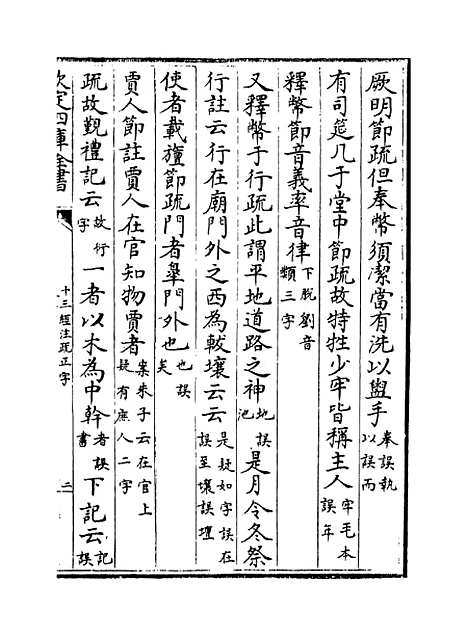 厥明節疏但奉幣須潔當有洗以盥手奉誤執以誤而
有司筵几于堂中節疏故特牲少牢皆稱主人牢毛本誤年
釋幣節音義率音律下脱劉音類三字
又釋幣于行疏此謂平地道路之神地誤池是月令冬祭
行註云行在廟門外之西為軷壤云云是疑如字誤在誤至壤誤壇
使者載旜節疏門者臯門外也也誤矣
賈人節註賈人在官知物賈者案朱子云在官上疑有庶人二字
疏故覲禮記云故衍字一者以木為中幹者誤書下記云記誤
欽定四庫全書
十三經注疏正字
二